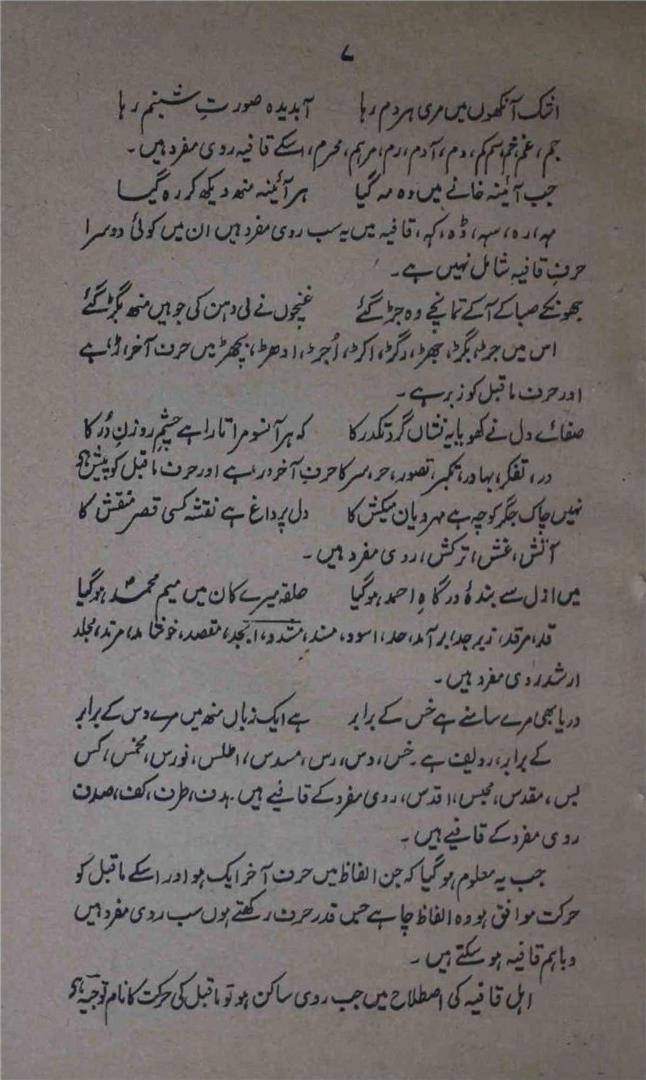 ۷
اشک آنکھوں میں مری ہر دم رہا آبدیدہ صورتِ شبنم رہا
جم، غم، خم، سم، کم، دم، آدم، رم، مرہم، محرم، اسکے قافیہ روی مفرد ہیں۔
جب آئینہ خانے میں وہ مہ گیا ہر آئینہ منھ دیکھ کر رہ گیا
مہ، رہ، سہ، ڈہ، کہہ، قافیہ میں یہ سب روی مفرد ہیں ان میں کوئی دوسرا
حرفِ قافیہ شامل نہیں ہے۔
جھونکے صبا کے آکے تمانچے وہ جڑ گئے غنچوں نے لی دہن کی جو ہیں منھ بگڑ گئے
اس میں جڑ، بگڑ، جھڑ، رگڑ، اکڑ، اُجڑ، ادھڑ، پچھڑ میں حرف آخر، ڑ، ہے
اور حرف ماقبل کو زبر ہے۔
صفائے دل نے کھویا یہ نشاں گردِ تکدر کا کہ ہر آنسو مرا تارا ہے چشمِ روزنِ در کا
در، تفکر، بہادر، تکبر، تصور، حر، سر کا حرفِ آخر در، ہے اور حرف ماقبل کو پیش ہے
نہیں چاک جگر کوچہ ہے مہرویان میکش کا دل پر داغ ہے نقشہ کسی قصر منقش کا
آتش، غش، ترکش، روی مفرد ہیں۔
میں ازل سے بندۂ درگاہِ احمد ہوگیا حلقہ میرے کان میں میم محمدؐ ہوگیا
قد، مرقد، زبرجد، برآمد، حد، اسود، مسند، ابجد، مقصد، خوشامد، مرتد، مجلد
ارشد روی مفرد ہیں۔
دریا بھی مرے سامنے ہے خس کے برابر ہے ایک زباں منھ میں مرے دس کے برابر
کے برابر، ردیف ہے۔ خس، دس، رس، مسدس، اطلس، نورس، مخمس، کس
بس، مقدس، مجبس، اقدس، روی مفرد کے قافیے ہیں۔ ہدف، طرف، کف، صدف
روی مفرد کے قافیے ہیں۔
جب یہ معلوم ہوگیا کہ جن الفاظ میں حرف آخر ایک ہو اور اسکے ماقبل کو
حرکت موافق ہو وہ الفاظ چاہے جس قدر حرف رکھتے ہوں سب روی مفرد ہیں
وباہم قافیہ ہو سکتے ہیں۔
اہل قافیہ کی اصطلاح میں جب روی ساکن ہو تو ماقبل کی حرکت کا نام توجیہ ہے